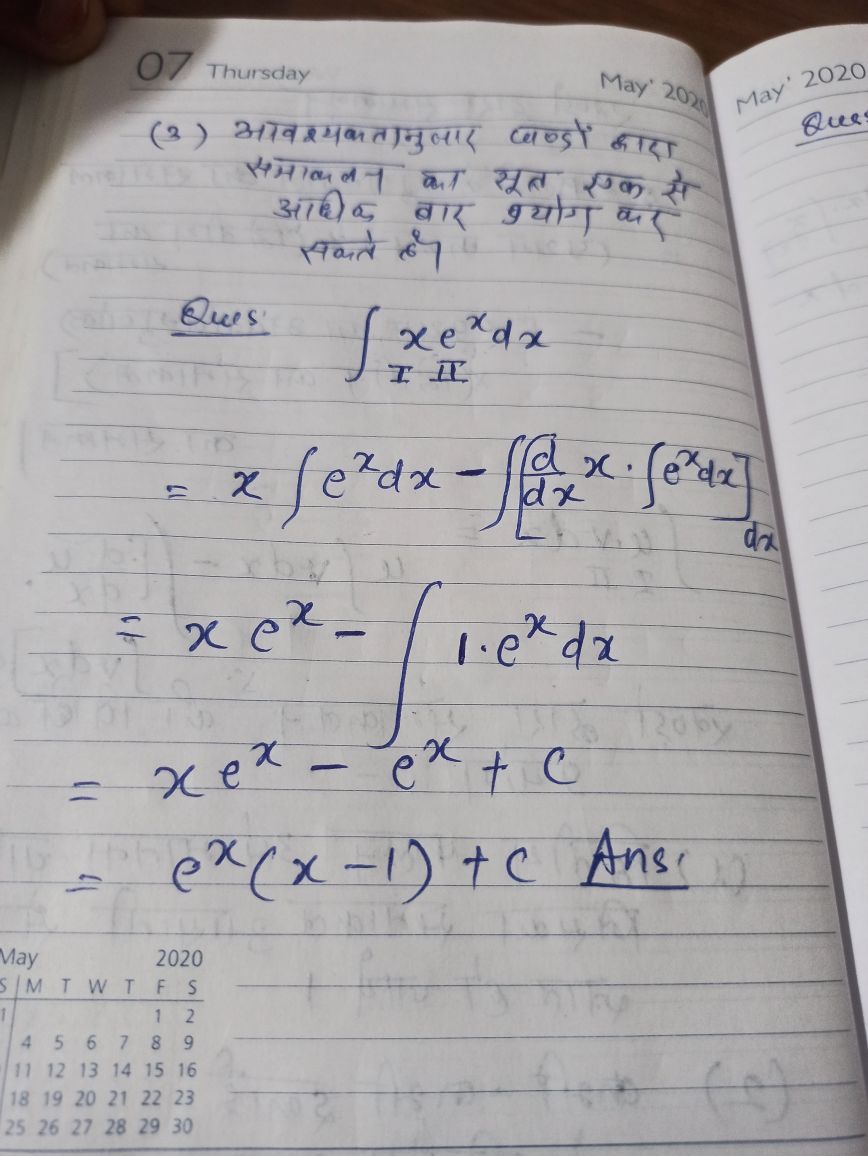 07 Thursday May' 2020
May' 2020
Ques
(3) आवश्यकतानुसार खण्डों द्वारा
समाकलन का सूत्र एक से
अधिक बार प्रयोग कर
सकते हैं।
Ques: ∫ x e^x dx
I II
= x ∫ e^x dx - ∫[d/dx x · ∫e^x dx] dx
= x e^x - ∫ 1·e^x dx
= x e^x - e^x + c
= e^x (x - 1) + c Ans:
May 2020
S M T W T F S
1 2
4 5 6 7 8 9
11 12 13 14 15 16
18 19 20 21 22 23
25 26 27 28 29 30